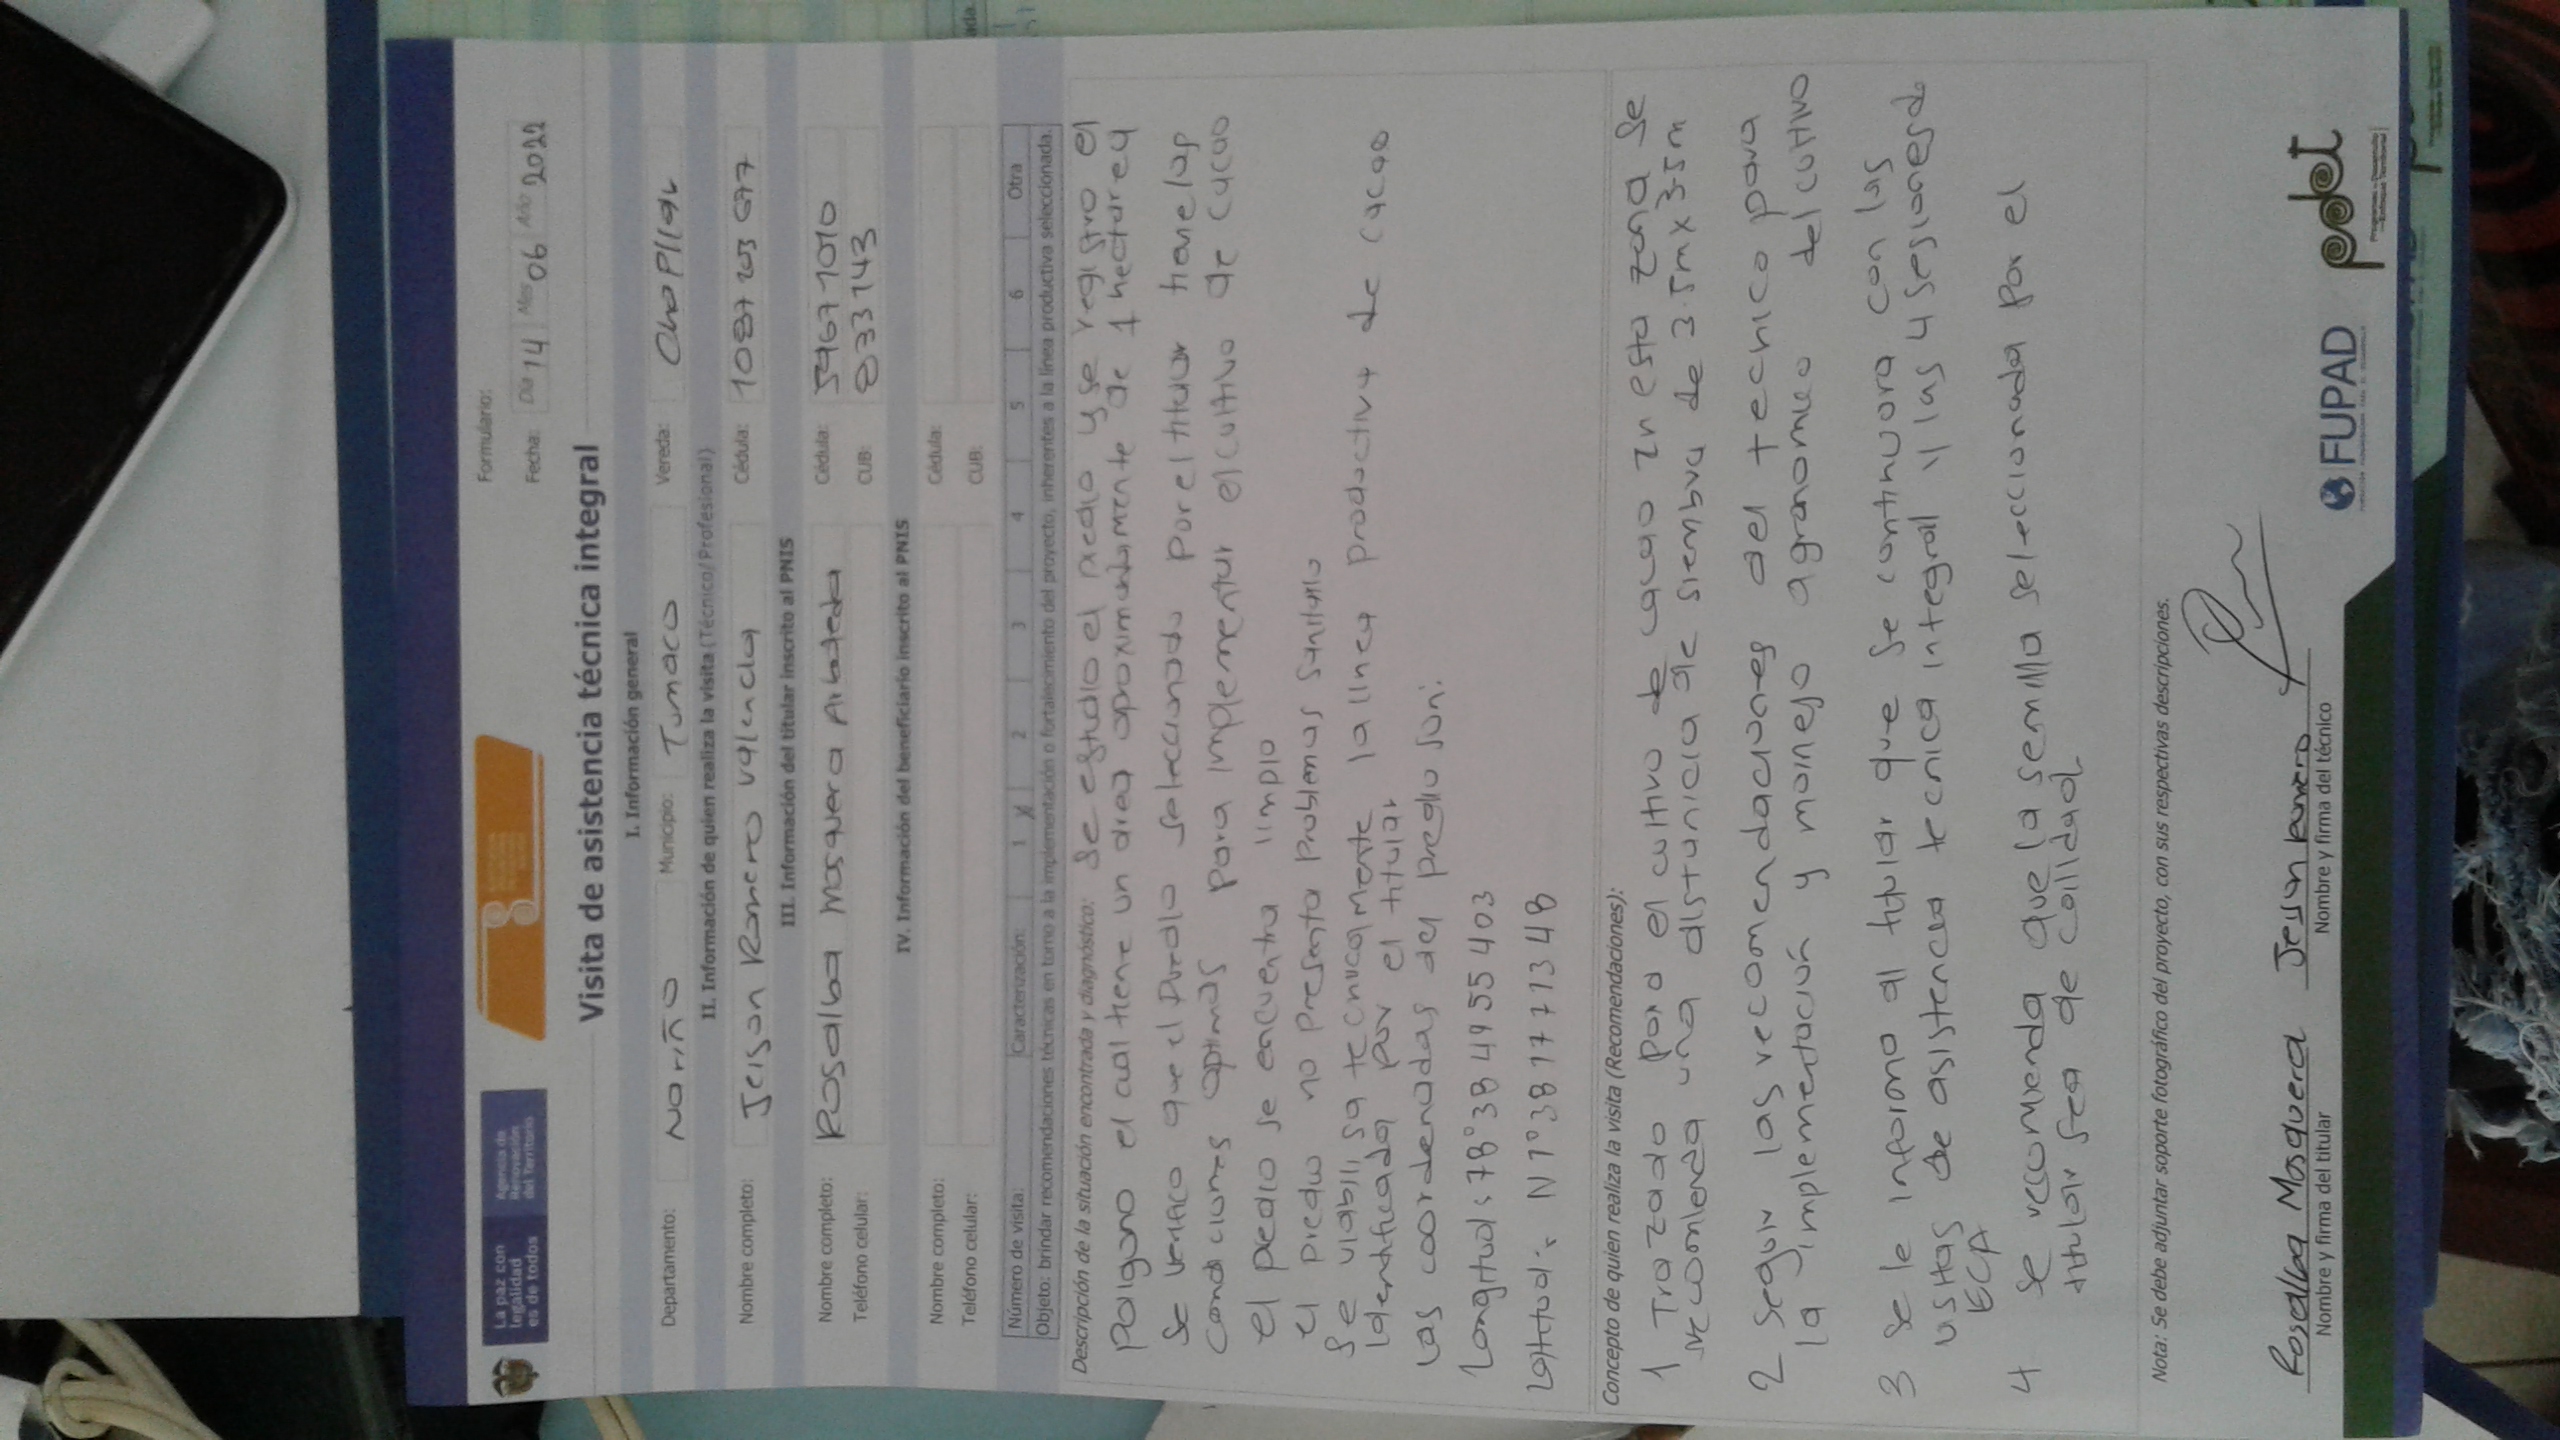 La paz con
legalidad
es de todos
Agencia de
Renovación
del Territorio
Formulario:
Fecha: Día 14 Mes 06 Año 2022
Visita de asistencia técnica integral
I. Información general
Departamento: Nariño Municipio: Tumaco Vereda: Chapilar
II. Información de quien realiza la visita (Técnico/ Profesional)
Nombre completo: Jeison Romero valencia Cédula: 1087203677
III. Información del titular inscrito al PNIS
Nombre completo: Rosalba Mosquera Arboleda Cédula: 59671010
Teléfono celular: CUB: 8331143
IV. Información del beneficiario inscrito al PNIS
Nombre completo: Cédula:
Teléfono celular: CUB:
Número de visita: Caracterización: 1 X 2 3 4 5 6 Otra
Objeto: brindar recomendaciones técnicas en torno a la implementación o fortalecimiento del proyecto, inherentes a la línea productiva seleccionada.
Descripción de la situación encontrada y diagnóstico: Se estudio el predio y se registro el
poligono el cual tiene un area aproximadamente de 1 hectarea
Se verifico que el Predio seleccionado por el titular tiene las
condiciones optimas para implementar el cultivo de cacao
el predio se encuentra limpio
el predio no presenta problemas sanitario
Se viabiliza tecnicamente la linea productiva de cacao
identificada por el titular
Las coordenadas del predio son:
Longitud: 78°38 4955403
Latitud: N1°38 1771348
Concepto de quien realiza la visita (Recomendaciones):
1 Trazado para el cultivo de cacao en esta zona se
recomienda una distancia de siembra de 3.5m x 3.5m
2 seguir las recomendaciones del tecnico para
la implementación y manejo agronomico del cultivo
3 se le informo al titular que se continuara con las
visitas de asistencia tecnica integral y las 4 sesiones de
ECA
4 se recomienda que la semilla seleccionada por el
titular sea de calidad
Nota: Se debe adjuntar soporte fotográfico del proyecto, con sus respectivas descripciones.
Rosalba Mosquera Jeison Romero
Nombre y firma del titular Nombre y firma del técnico
FUPAD
pdet